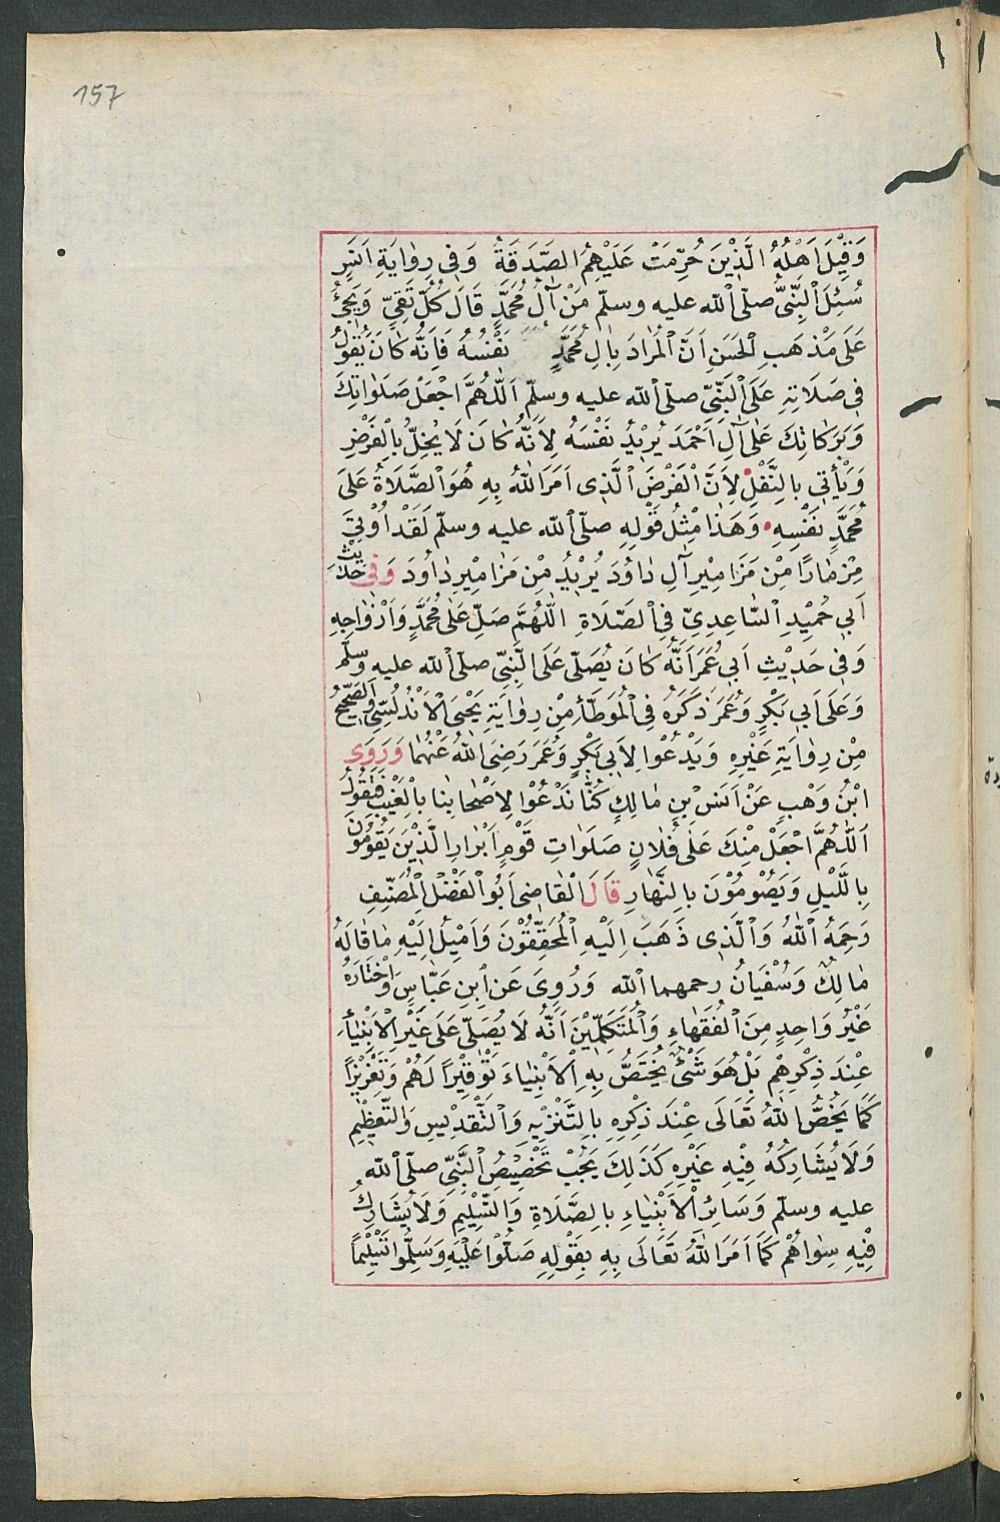 157
وَقِيْلَ اَهْلُهُ الَّذْيِنَ حُرِّمَتْ عَلَيْهِمُ الصَّدَقَةُ وَفِى رِوَايَةِ اَنَسٍ
سُئِلَ النَّبِىُّ صلّى الله عليه وسلّم مَنْ آلُ مُحَمَّدٍ قَالَ كُلُّ تَقِىٍّ وَيَجِئُ
عَلَى مَذْهَبِ الْحَسَنِ اَنَّ الْمُرَادَ بِاٰلِ مُحَمَّدٍ نَفْسُهُ فَاِنَّهُ كَانَ يَقُولُ
فِى صَلَاتِهِ عَلَى النَّبِىِّ صلّى الله عليه وسلّم اَللّٰهُمَّ اجْعَلْ صَلَوَاتِكَ
وَبَرَكَاتِكَ عَلٰى آلِ اَحْمَدَ يُرِيْدُ نَفْسَهُ لِاَنَّهُ كَانَ لَا يُخِلُّ بِالْفَرْضِ
وَيَأْتِى بِالنَّفْلِ لِاَنَّ الْفَرْضَ الَّذِى اَمَرَ اللهُ بِهِ هُوَ الصَّلَاةُ عَلَى
مُحَمَّدٍ نَفْسِهِ وَهَذَا مِثْلُ قَوْلِهِ صلّى الله عليه وسلّم لَقَدْ اُوْتِىَ
مِزْمَارًا مِنْ مَزَامِيْرِ آلِ دَاوُدَ يُرِيْدُ مِنْ مَزَامِيْرِ دَاوُدَ وَفِى حَدِيْثِ
اَبِى حُمَيْدِ السَّاعِدِىِّ فِى الصَّلَاةِ اَللّٰهُمَّ صَلِّ عَلَى مُحَمَّدٍ وَاَزْوَاجِهِ
وَفِى حَدِيْثِ اَبِى عُمَرَ اَنَّهُ كَانَ يُصَلِّى عَلَى النَّبِىِّ صلّى الله عليه وسلّم
وَعَلَى اَبِى بَكْرٍ وَعُمَرَ ذَكَرَهُ فِى الْمُوَطَّأِ مِنْ رِوَايَةِ يَحْيَى الْاَنْدَلُسِىِّ وَالصَّحِيْحُ
مِنْ رِوَايَةِ غَيْرِهِ وَيَدْعُوا لِاَبِى بَكْرٍ وَعُمَرَ رَضِىَ اللهُ عَنْهُمَا وَرَوَى
ابْنُ وَهْبٍ عَنْ اَنَسِ بْنِ مَالِكٍ كُنَّا نَدْعُوْا لِاَصْحَابِنَا بِالْغَيْبِ فَنَقُولُ
اَللّٰهُمَّ اجْعَلْ مِنْكَ عَلَى فُلَانٍ صَلَوَاتِ قَوْمٍ اَبْرَارٍ الَّذْيِنَ يَقُوْمُوْنَ
بِاللَّيْلِ وَيَصُوْمُوْنَ بِالنَّهَارِ قَالَ الْقَاضِى اَبُو الْفَضْلِ الْمُصَنِّفِ
رَحِمَهُ اللهُ وَالَّذِى ذَهَبَ اِلَيْهِ الْمُحَقِّقُوْنَ وَاَمِيْلُ اِلَيْهِ مَا قَالَهُ
مَالِكٌ وَسُفْيَانُ رحمهما الله وَرُوِىَ عَنِ ابْنِ عَبَّاسٍ وَاخْتَارَهُ
غَيْرُ وَاحِدٍ مِنَ الْفُقَهَاءِ وَالْمُتَكَلِّمِيْنَ اَنَّهُ لَا يُصَلَّى عَلَى غَيْرِ الْاَنْبِيَاءِ
عِنْدَ ذِكْرِهِمْ بَلْ هُوَ شَىْءٌ يُخْتَصُّ بِهِ الْاَنْبِيَاءَ تَوْقِيْرًا لَهُمْ وَتَعْزِيْزًا
كَمَا يُخَصُّ اللهُ تَعَالَى عِنْدَ ذِكْرِهِ بِالتَّنْزِيْهِ وَالتَّقْدِيْسِ وَالتَّعْظِيْمِ
وَلَا يُشَارِكُهُ فِيْهِ غَيْرُهِ كَذَلِكَ يَجُبُ تَخْصِيْصُ النَّبِىِّ صلّى الله
عليه وسلّم وَسَائِرُ الْاَنْبِيَاءِ بِالصَّلَاةِ وَالتَّسْلِيْمِ وَلَا يُشَارِكُ
فِيْهِ سِوَاهُمْ كَمَا اَمَرَ اللهُ تَعَالَى بِهِ بِقَوْلِهِ صَلُّوْا عَلَيْهِ وَسَلِّمُوا تَسْلِيْمًا